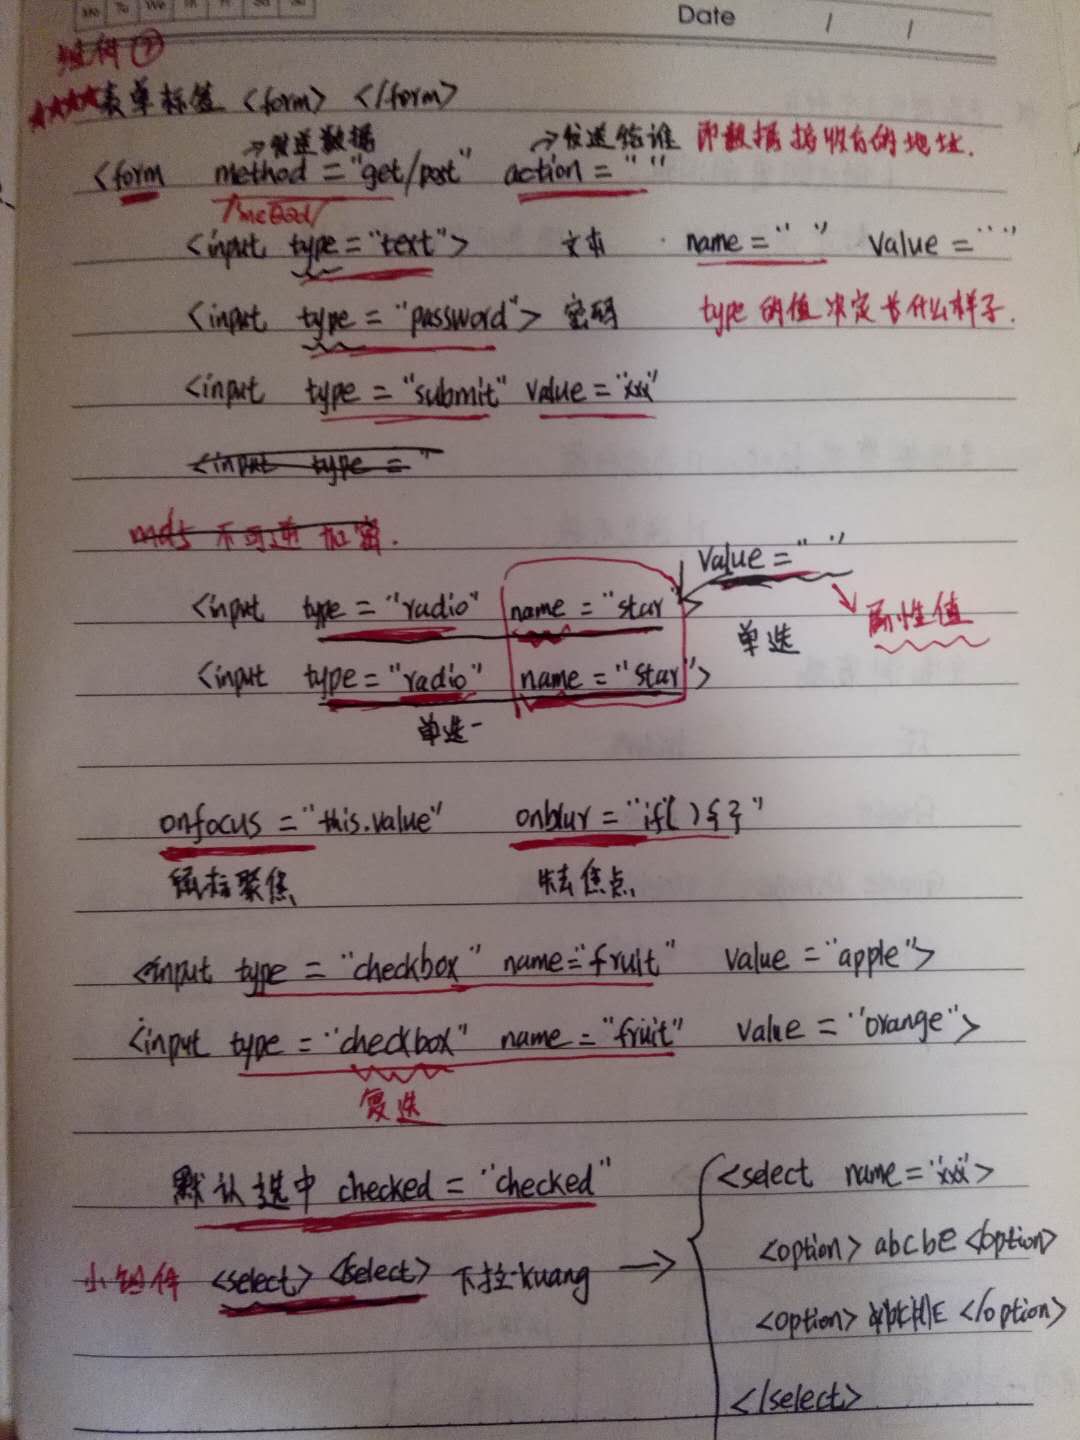 Mo Tu We Th Fr Sa Su
Date / /
组件⑦
★★★★表单标签 <form> </form>
→发送数据 →发送给谁 即数据接收后的地址.
<form method="get/post" action=" "
/'meθəd/
<input type="text"> 文本 name=" " value=" "
<input type="password"> 密码 type的值决定长什么样子.
<input type="submit" value="xxx"
<input type="
md5 不可逆加密.
value=" "
<input type="radio" name="star"> 单选 属性值
<input type="radio" name="star">
单选
onfocus="this.value" onblur="if(){}"
鼠标聚焦 失去焦点
<input type="checkbox" name="fruit" value="apple">
<input type="checkbox" name="fruit" value="orange">
复选
默认选中 checked="checked"
小组件 <select> <select> 下拉kuang →
<select name="xxx">
<option> abcbe <option>
<option> </option>
</select>